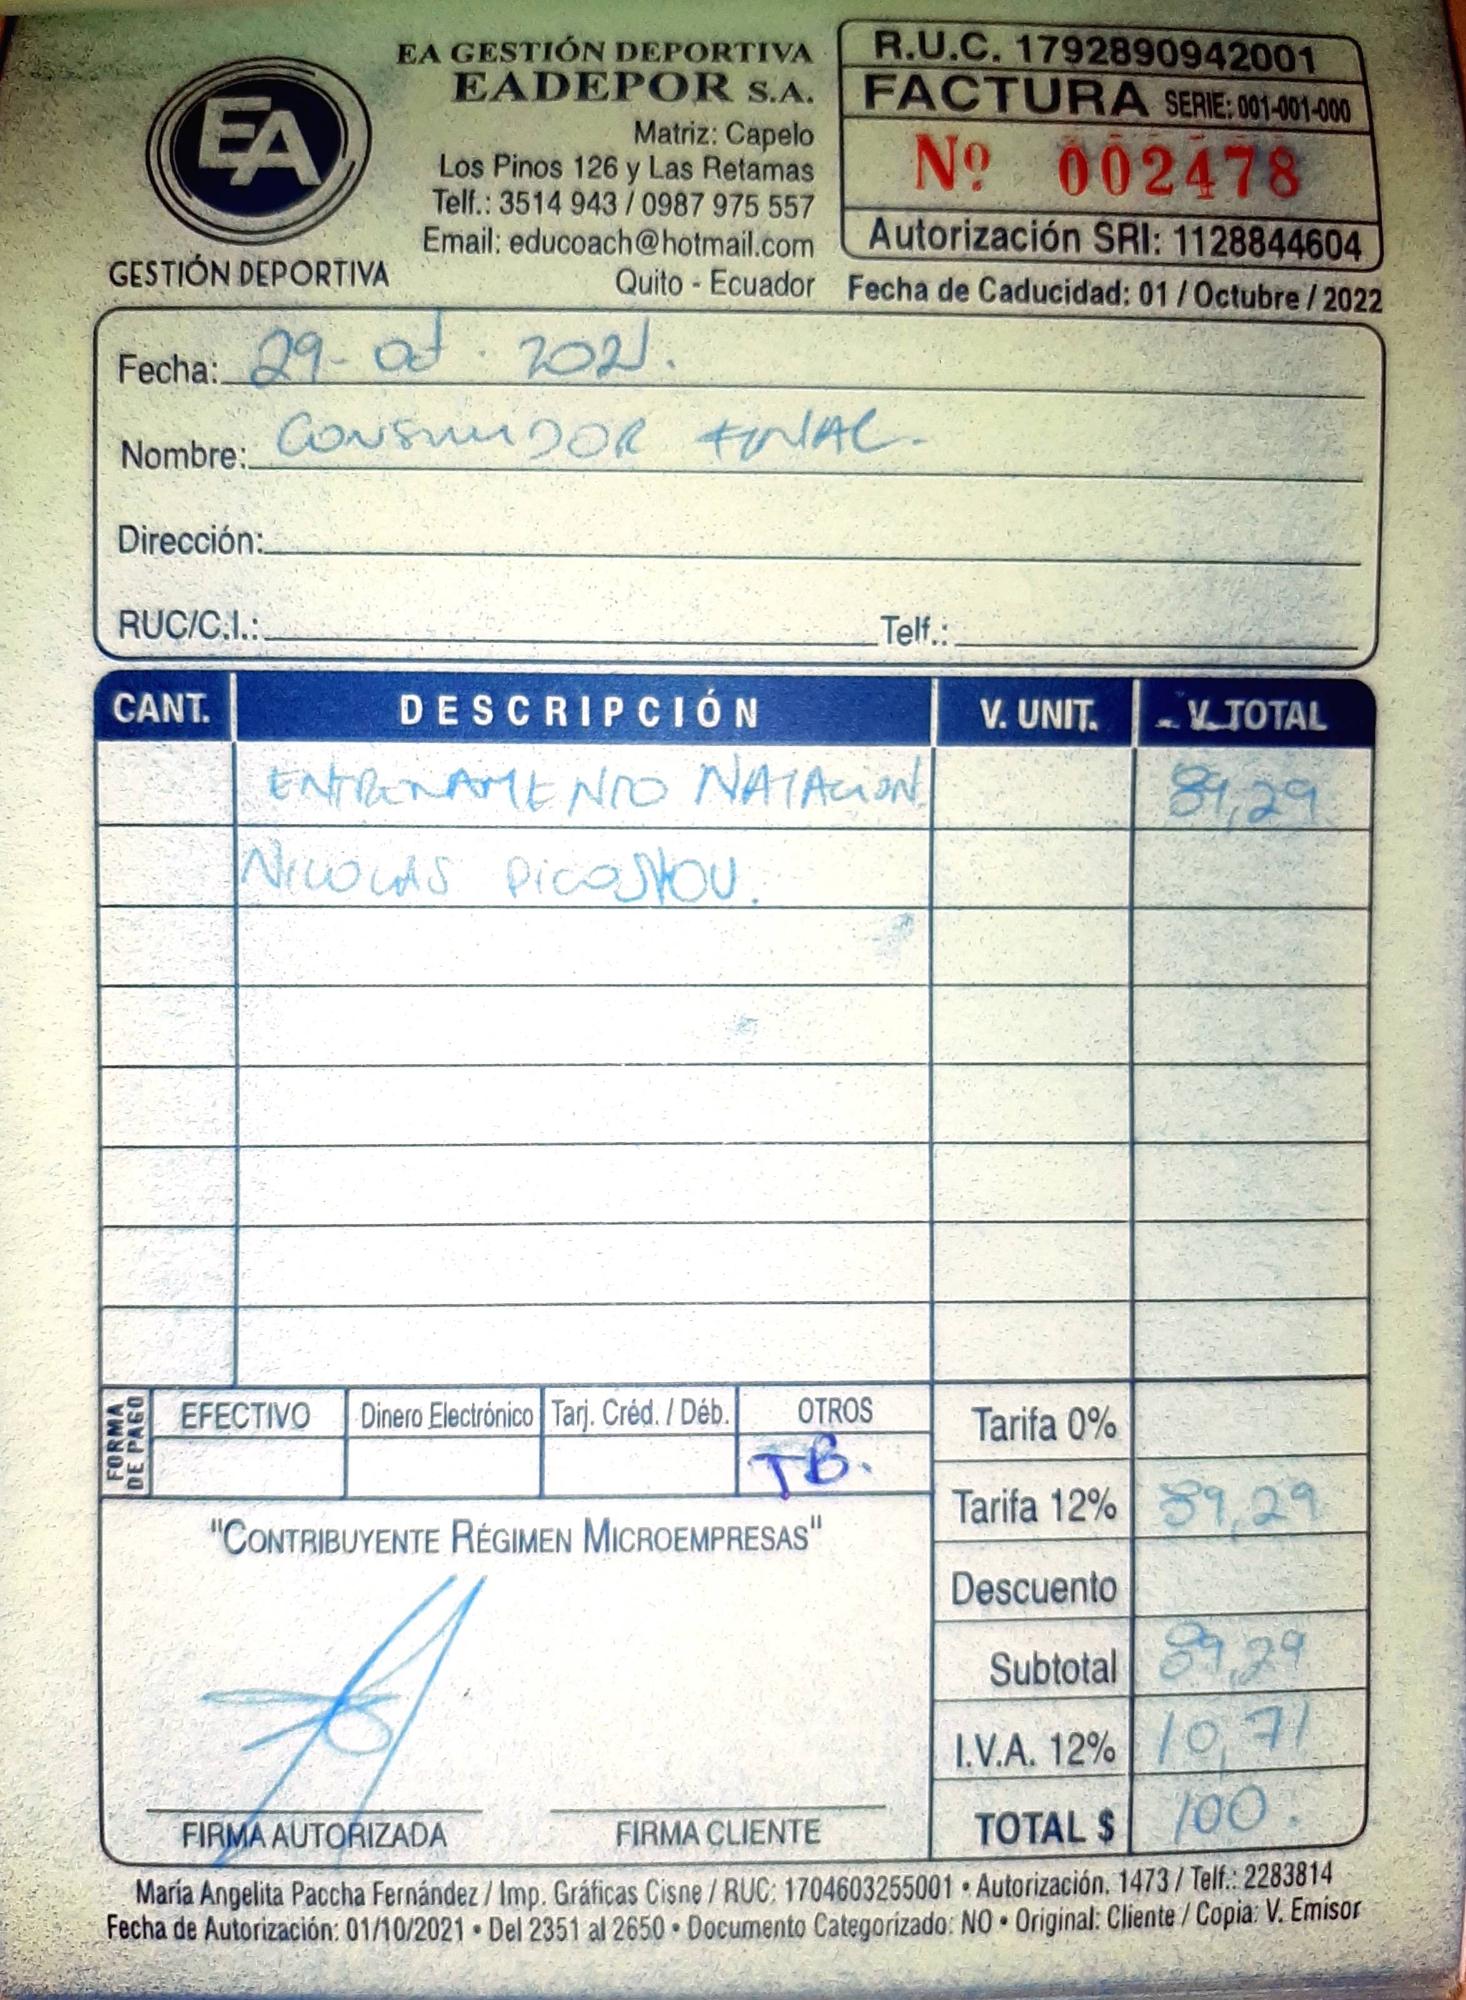 EA
GESTIÓN DEPORTIVA
EA GESTIÓN DEPORTIVA
EADEPOR S.A.
Matriz: Capelo
Los Pinos 126 y Las Retamas
Telf.: 3514 943 / 0987 975 557
Email: educoach@hotmail.com
Quito - Ecuador
R.U.C. 1792890942001
FACTURA SERIE: 001-001-000
Nº 002478
Autorización SRI: 1128844604
Fecha de Caducidad: 01 / Octubre / 2022
Fecha: 29 - oct . 2021.
Nombre: CONSUMIDOR FINAL.
Dirección:
RUC/C.I.: Telf.:
CANT. DESCRIPCIÓN V. UNIT. V. TOTAL
ENTRENAMIENTO NATACION. 89,29
NICOLAS
FORMA DE PAGO
EFECTIVO Dinero Electrónico Tarj. Créd. / Déb. OTROS
TB.
Tarifa 0%
Tarifa 12% 89,29
Descuento
Subtotal 89,29
I.V.A. 12% 10,71
TOTAL $ 100.
"CONTRIBUYENTE RÉGIMEN MICROEMPRESAS"
FIRMA AUTORIZADA FIRMA CLIENTE
María Angelita Paccha Fernández / Imp. Gráficas Cisne / RUC: 1704603255001 • Autorización. 1473 / Telf.: 2283814
Fecha de Autorización: 01/10/2021 • Del 2351 al 2650 • Documento Categorizado: NO • Original: Cliente / Copia: V. Emisor